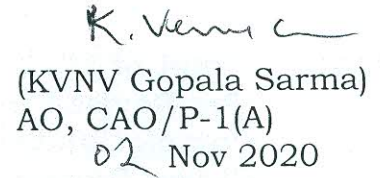 (KVNV Gopala Sarma)
AO, CAO/P-1(A)
02 Nov 2020